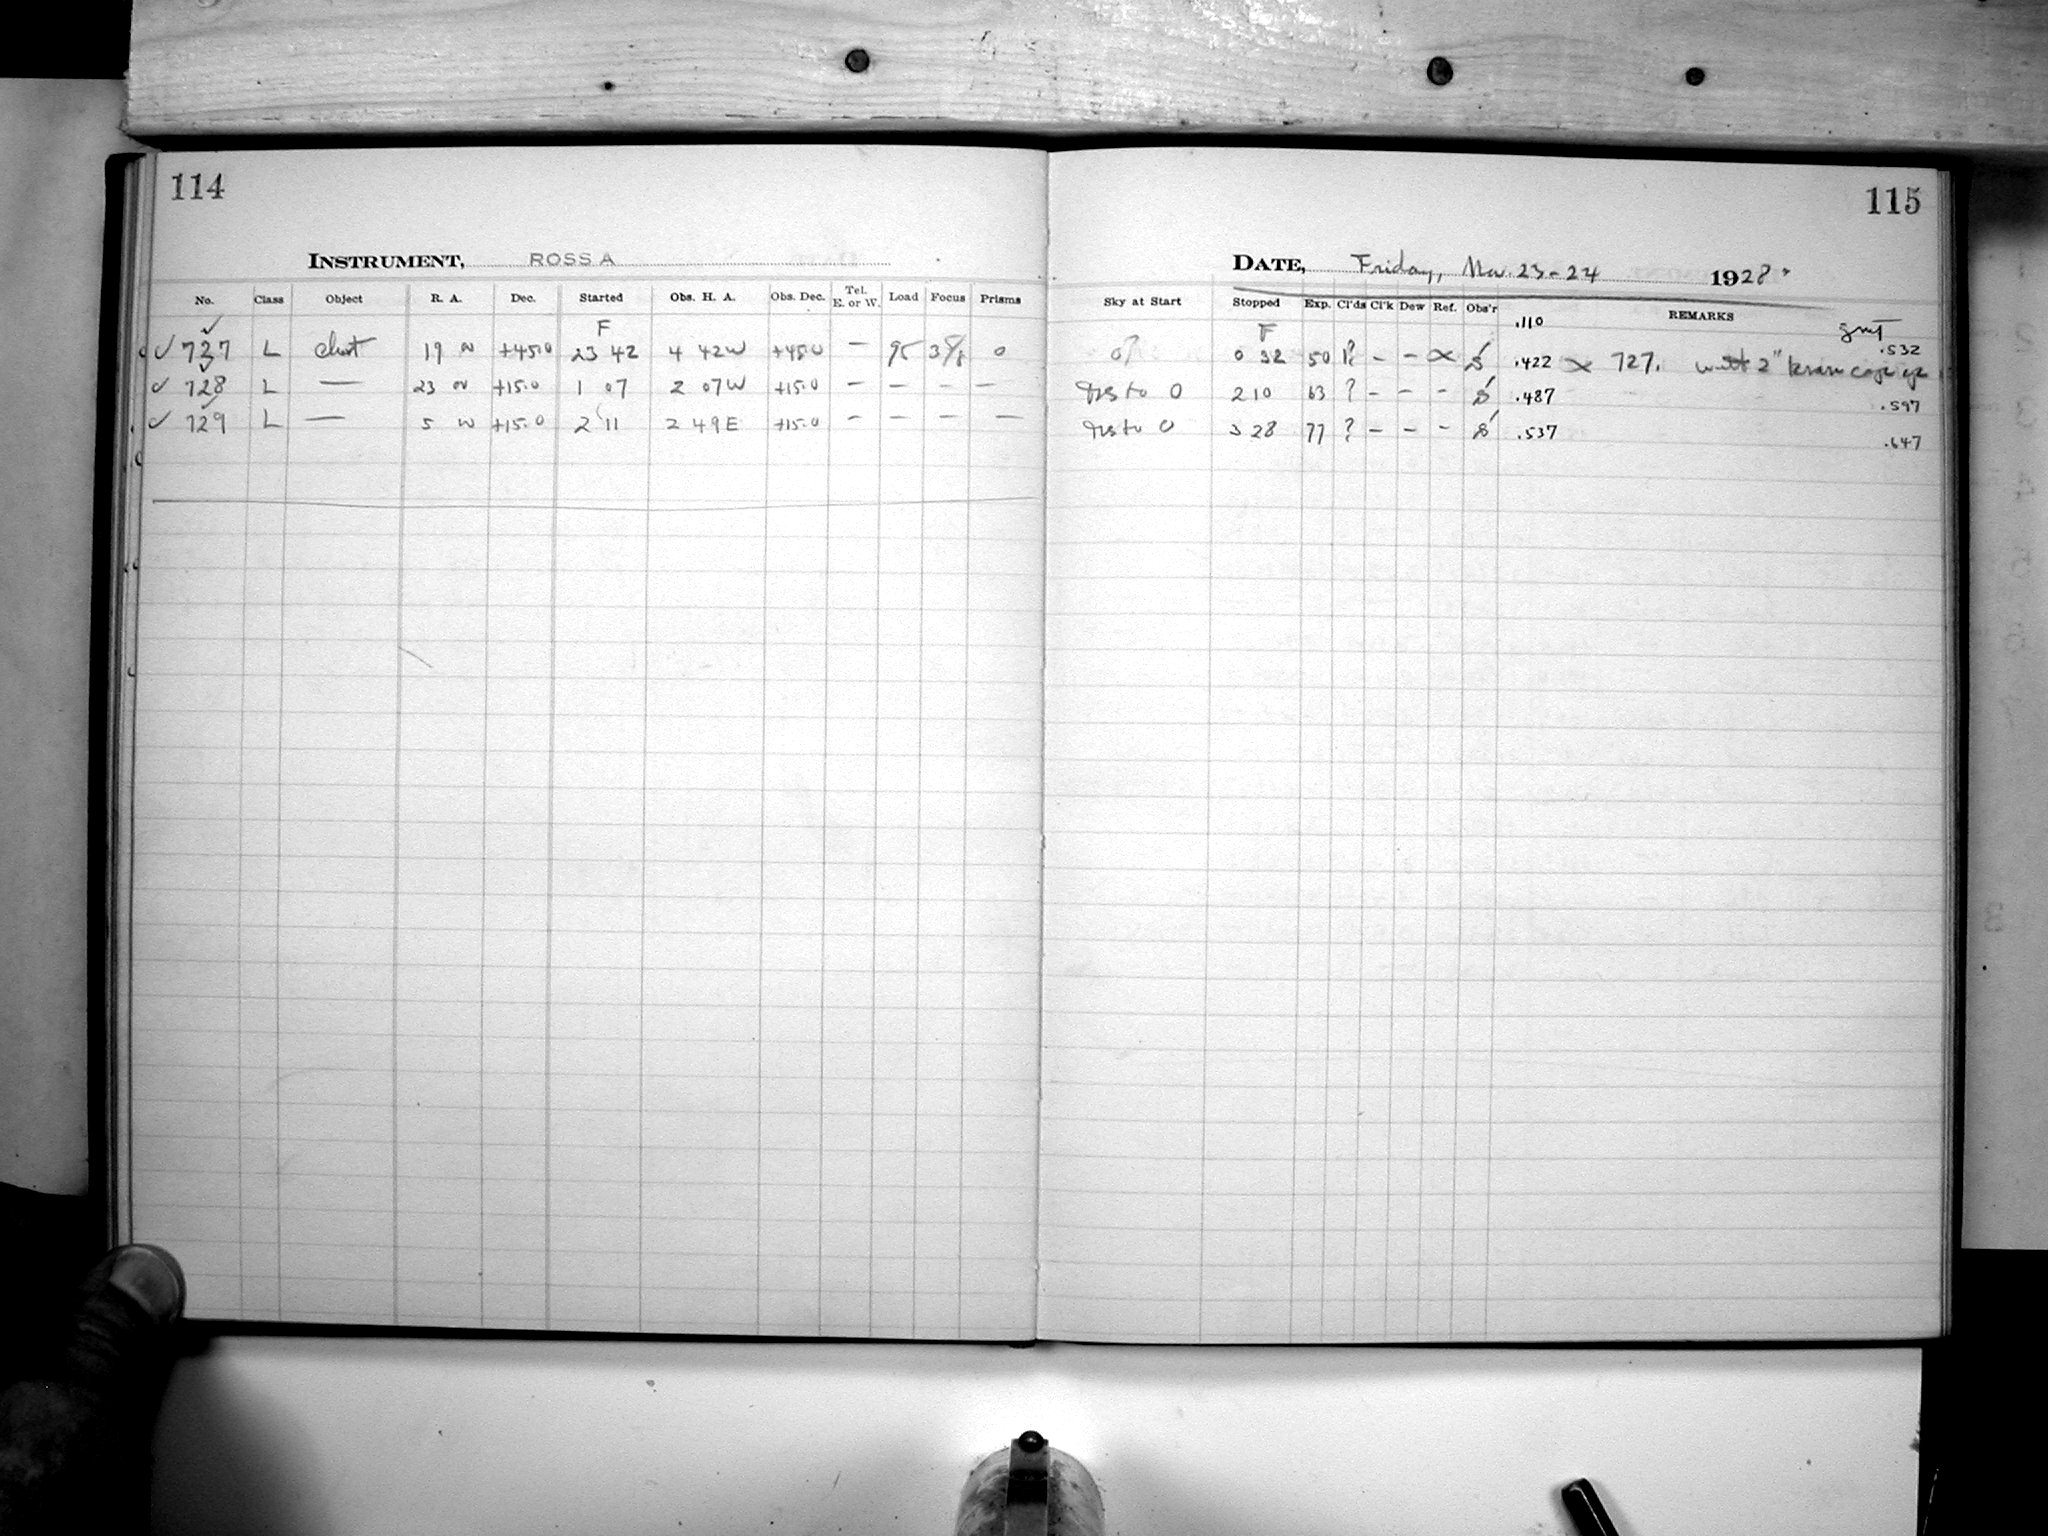 114
INSTRUMENT, ROSS A
No. Class Object R. A. Dec. Started Obs. H. A. Obs. Dec. Tel. E. or W. Load Focus Prisms
F
727 L chart 19 N +45.0 23 42 4 42W +45.0 — 95 0
728 L — 23 N +15.0 1 07 2 07W +15.0 — — — —
729 L — 5 N +15.0 2 11 2 49E +15.0 — — — —
115
DATE, Friday, Nov. 23-24 1928.
Sky at Start Stopped Exp. Cl'ds Cl'k Dew Ref. Obs'r REMARKS
F .110 gmt
0 32 50 1? – – .422 727. with 2" .532
to 0 2 10 63 ? – – – .487 .597
to 0 3 28 77 ? – – – .537 .647